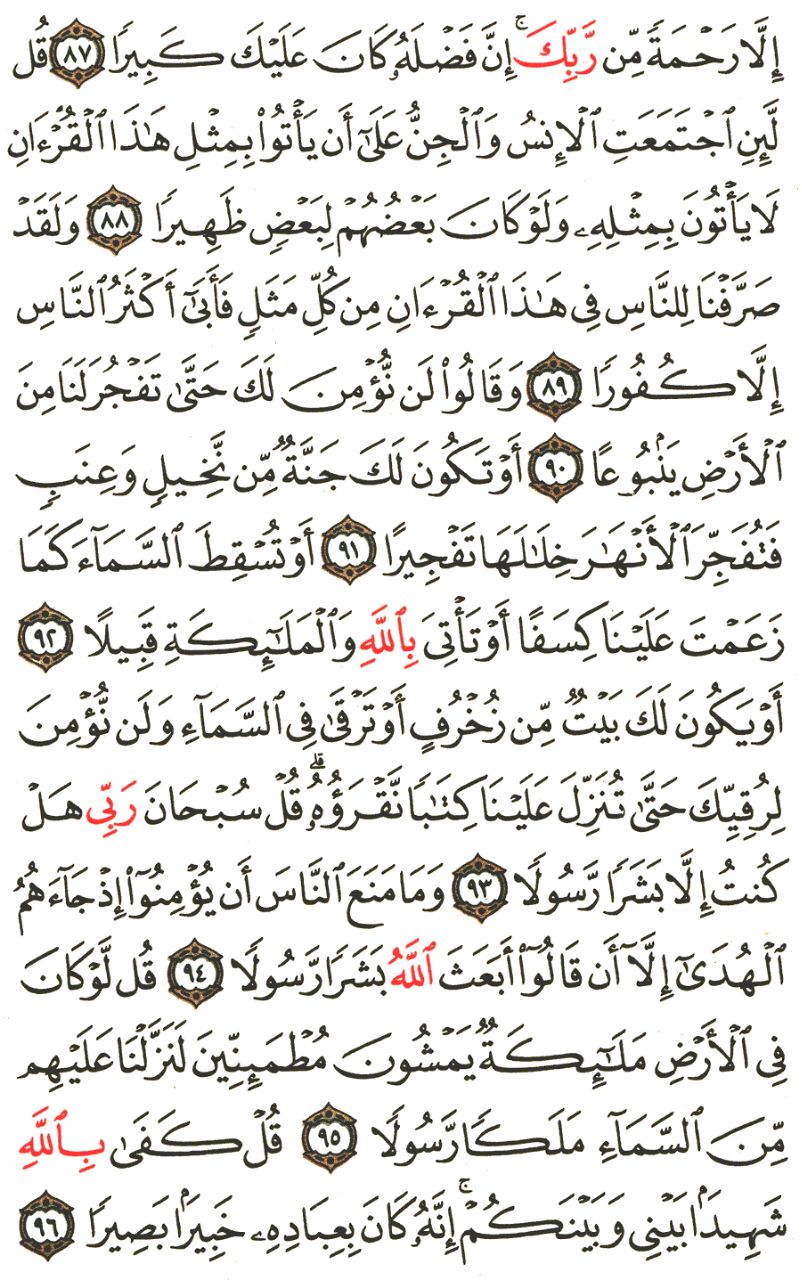 إِلَّا رَحْمَةً مِّن رَّبِّكَ ۚ إِنَّ فَضْلَهُۥ كَانَ عَلَيْكَ كَبِيرًا ﴿٨٧﴾ قُل
لَّئِنِ ٱجْتَمَعَتِ ٱلْإِنسُ وَٱلْجِنُّ عَلَىٰٓ أَن يَأْتُوا۟ بِمِثْلِ هَـٰذَا ٱلْقُرْءَانِ
لَا يَأْتُونَ بِمِثْلِهِۦ وَلَوْ كَانَ بَعْضُهُمْ لِبَعْضٍ ظَهِيرًا ﴿٨٨﴾ وَلَقَدْ
صَرَّفْنَا لِلنَّاسِ فِى هَـٰذَا ٱلْقُرْءَانِ مِن كُلِّ مَثَلٍ فَأَبَىٰٓ أَكْثَرُ ٱلنَّاسِ
إِلَّا كُفُورًا ﴿٨٩﴾ وَقَالُوا۟ لَن نُّؤْمِنَ لَكَ حَتَّىٰ تَفْجُرَ لَنَا مِنَ
ٱلْأَرْضِ يَنۢبُوعًا ﴿٩٠﴾ أَوْ تَكُونَ لَكَ جَنَّةٌ مِّن نَّخِيلٍ وَعِنَبٍ
فَتُفَجِّرَ ٱلْأَنْهَـٰرَ خِلَـٰلَهَا تَفْجِيرًا ﴿٩١﴾ أَوْ تُسْقِطَ ٱلسَّمَآءَ كَمَا
زَعَمْتَ عَلَيْنَا كِسَفًا أَوْ تَأْتِىَ بِٱللَّهِ وَٱلْمَلَـٰٓئِكَةِ قَبِيلًا ﴿٩٢﴾
أَوْ يَكُونَ لَكَ بَيْتٌ مِّن زُخْرُفٍ أَوْ تَرْقَىٰ فِى ٱلسَّمَآءِ وَلَن نُّؤْمِنَ
لِرُقِيِّكَ حَتَّىٰ تُنَزِّلَ عَلَيْنَا كِتَـٰبًا نَّقْرَؤُهُۥ ۗ قُلْ سُبْحَانَ رَبِّى هَلْ
كُنتُ إِلَّا بَشَرًا رَّسُولًا ﴿٩٣﴾ وَمَا مَنَعَ ٱلنَّاسَ أَن يُؤْمِنُوٓا۟ إِذْ جَآءَهُمُ
ٱلْهُدَىٰٓ إِلَّآ أَن قَالُوٓا۟ أَبَعَثَ ٱللَّهُ بَشَرًا رَّسُولًا ﴿٩٤﴾ قُل لَّوْ كَانَ
فِى ٱلْأَرْضِ مَلَـٰٓئِكَةٌ يَمْشُونَ مُطْمَئِنِّينَ لَنَزَّلْنَا عَلَيْهِم
مِّنَ ٱلسَّمَآءِ مَلَكًا رَّسُولًا ﴿٩٥﴾ قُلْ كَفَىٰ بِٱللَّهِ
شَهِيدًۢا بَيْنِى وَبَيْنَكُمْ ۚ إِنَّهُۥ كَانَ بِعِبَادِهِۦ خَبِيرًۢا بَصِيرًا ﴿٩٦﴾